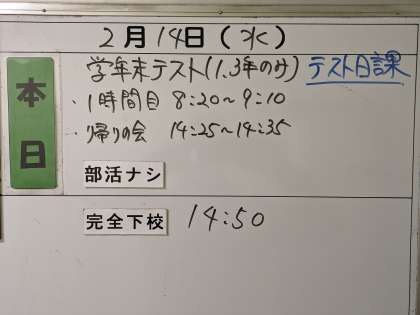 2月14日(水)
本日
学年末テスト(1.3年のみ) テスト日課
・1時間目 8:20～9:10
・帰りの会 14:25～14:35
部活ナシ
完全下校 14:50